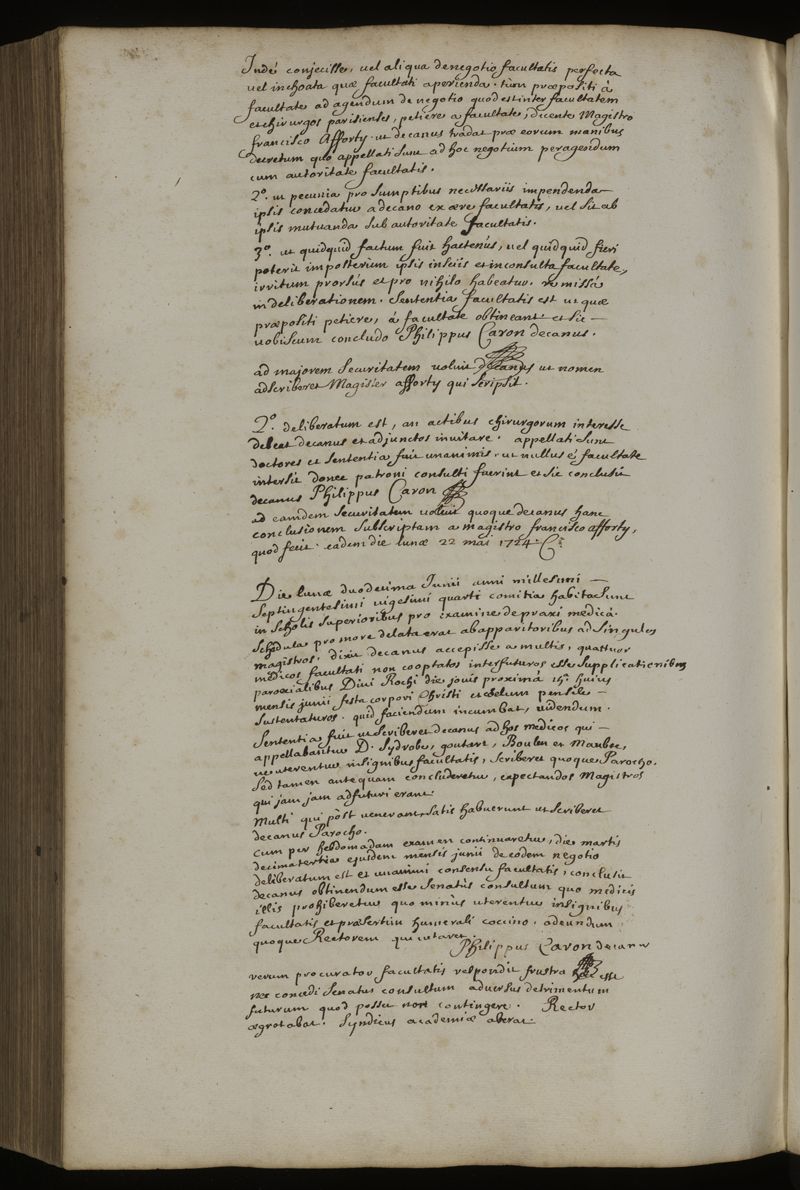 Indè conjecisse, vel aliqua de negotio facultatis perfecta
vel inchoata quæ facultati aperienda. tum præpositi à
facultate ad agendum de negotio quod est inter facultatem
et chirurgos parisienses, petiere a facultate, dicente Magistro
francisco Afforty. ut decanus tradat præ eorum manibus
decretum quo appellati sunt ad hoc negotium peragendum
cum autoritate facultatis.
2°. ut pecunia pro sumptibus necessariis impendenda
ipsis concedatur a decano ex ære facultatis, vel sit ab
ipsis mutuanda sub autoritate facultatis.
3°. ut quidquid factum fuit hactenùs, vel quidquid fieri
poterit imposterum ipsis insciis et inconsulta facultate,
irritum prorsùs et pro nihilo habeatur. re missâ
in deliberationem. Sententia facultatis est ut quæ
præpositi petiere, à facultate obtineant et sic
vobiscum concludo Philippus Caron decanus.
ad majorem securitatem voluit decanus ut nomen
adscriberet Magister afforty qui scripsit.
2° deliberatum est, an actibus chirurgorum interesse
debeat decanus et adjunctos invitare. appellati sunt
doctores et sententia fuit unanimis. ut nullus è facultate
intersit donec patroni consulti fuerint et sic conclusit
decanus Philippus Caron
ad eamdem securitatem voluit quoque decanus hanc
conclusionem subscriptam a magistro francisco afforty,
quod fecit. eadem die lunæ 22 mai 1724.
Die lunæ duodecima Junii anni millesimi
Septingentesimi vigesimi quarti comitia habita sunt
in scholis superioribus pro examine de praxi medicâ.
Schedula pro more delata erat ab apparitoribus ad singulos
magistros. dixit decanus accepisse a multis, quattuor
medicos facultati non cooptatos interfuturos esse supplicationibus
parœcialibus Divi Rochi die jovis proximâ 15â huius
mensis junii festa corpori Christi et cœlum pensile
sustentaturos. quid faciendum incumbat, videndum.
Sententia fuit ut scriberet decanus ad hos medicos qui
appellabantur D. Sydrobe, goutart, Boulen et Maubec,
ne uterentur insignibus facultatis, scriberet quoque Parocho.
Sed tamen antequam concluderetur, expectandos Magistros
qui jam jam adfuturi erant.
Multi qui pòst venerant, satis habuerunt ut scriberet
decanus Parocho.
Cum per hebdomadam examen continuaretur, die martis
decimatertia ejusdem mensis junii de eodem negotio
deliberatum est et unanimi consensu facultatis, conclusit
decanus obtinendum esse senatûs consultum quo medicis
illis prohiberetur quo minùs uterentur insignibus
facultatis et præsertim humerali coccino. adeundum
quoque Rectorem qui curaret.
Philippus Caron decanus
verum procurator facultatis respondit frustra esse
nec concedi senatus consultum adversus detrimentum
futurum quod posset non contingere. Rector
ægrotabat. Syndicus academiæ aberat.